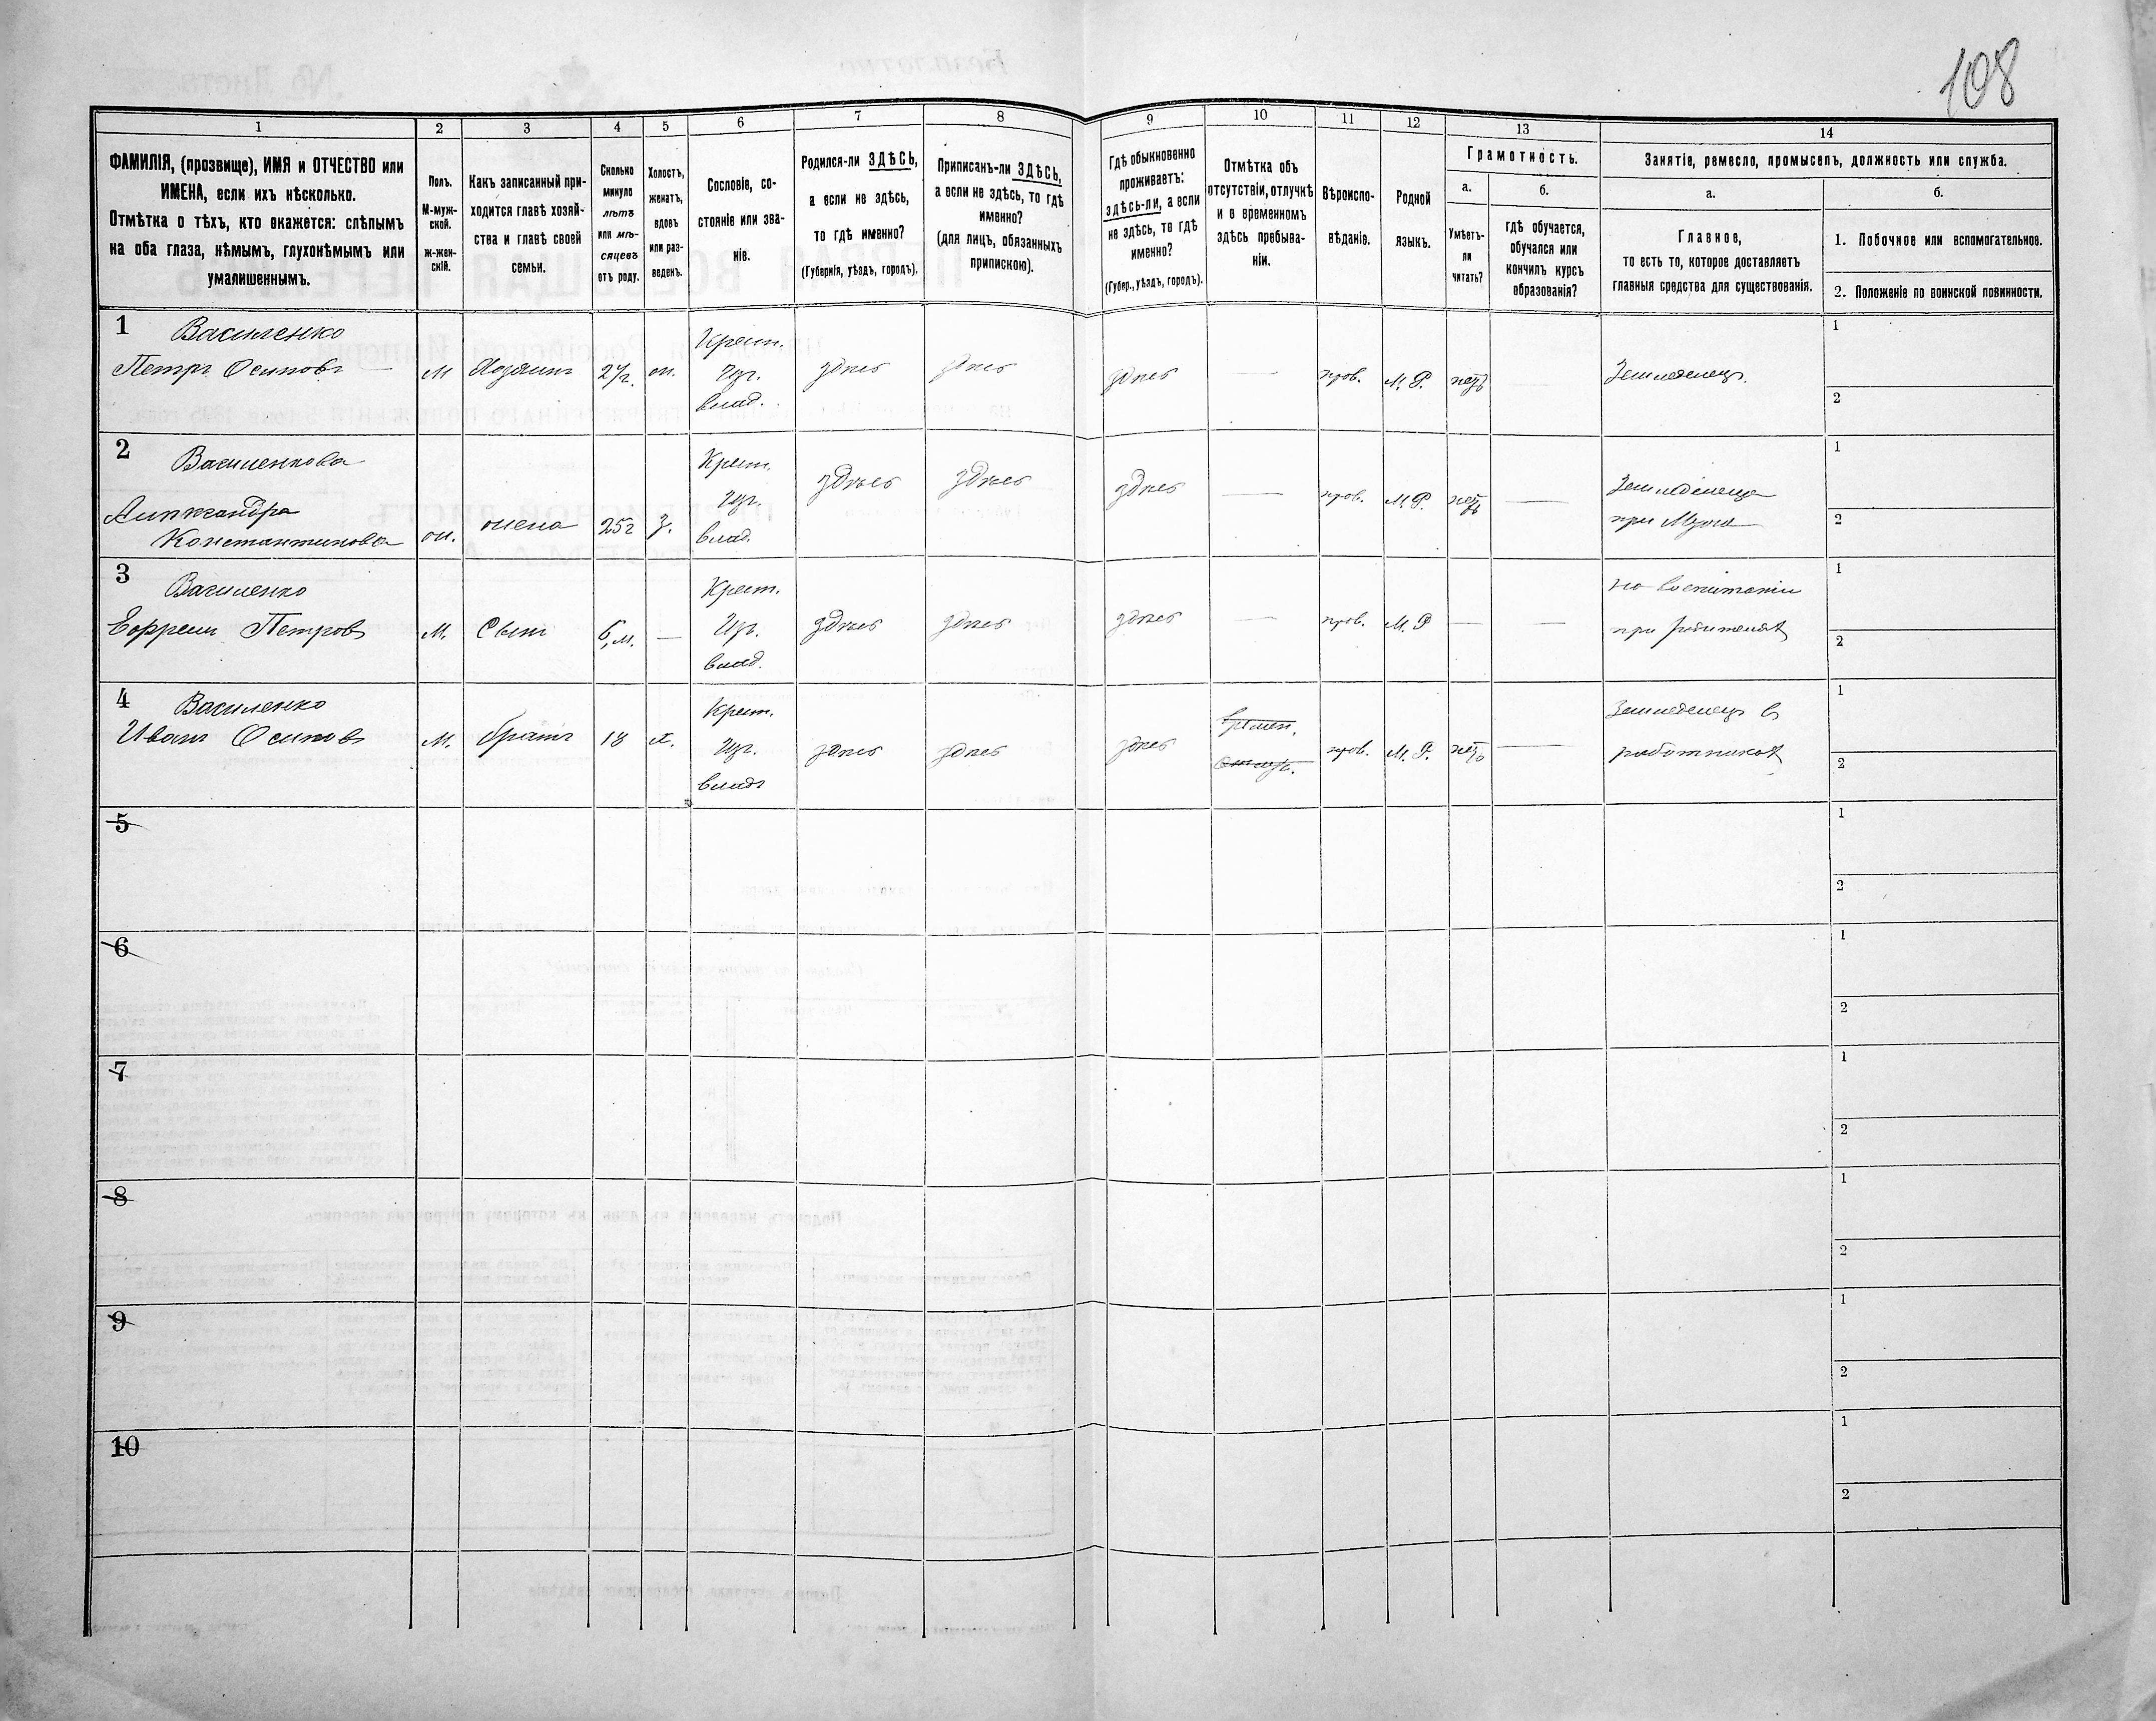 108
1 2 3 4 5 6 7 8 9 10 11 12 13 14
ФАМИЛІЯ, (прозвище), ИМЯ и ОТЧЕСТВО или
ИМЕНА, если ихъ нѣсколько.
Отмѣтка о тѣхъ, кто окажется: слѣпымъ
на оба глаза, нѣмымъ, глухонѣмымъ или
умалишеннымъ.
Полъ.
М-муж-
ской.
ж-жен-
скій.
Какъ записанный при-
ходится главѣ хозяй-
ства и главѣ своей
семьи.
Сколько
минуло
лѣтъ
или мѣ-
сяцевъ
отъ роду.
Холостъ,
женатъ,
вдовъ
или раз-
веденъ.
Сословіе, со-
стояніе или зва-
ніе.
Родился-ли ЗДѢСЬ,
а если не здѣсь,
то гдѣ именно?
(Губернія, уѣздъ, городъ).
Приписанъ-ли ЗДѢСЬ,
а если не здѣсь, то гдѣ
именно?
(для лицъ, обязанныхъ
припискою).
Гдѣ обыкновенно
проживаетъ:
здѣсь-ли, а если
не здѣсь, то гдѣ
именно?
(Губер., уѣздъ, городъ).
Отмѣтка объ
отсутствіи, отлучкѣ
и о временномъ
здѣсь пребыва-
ніи.
Вѣроиспо-
вѣданіе.
Родной
языкъ.
Грамотность.
а.
Умѣетъ-
ли
читать?
б.
гдѣ обучается,
обучался или
кончилъ курсъ
образованія?
Занятіе, ремесло, промыселъ, должность или служба.
а.
Главное,
то есть то, которое доставляетъ
главныя средства для существованія.
б.
1. Побочное или вспомогательное.
2. Положеніе по воинской повинности.
1
Василенко
Петръ Осиповъ
М
Хозяинъ
27г.
ж.
Крест.
Изг.
влад.
здѣсь
здѣсь
здѣсь
прав.
М. Р.
нетъ
Земледелецъ.
1
2
2
Василенкова
Александра
Константинова
ж.
жена
25г
З.
Крест.
Изг.
влад.
здѣсь
здѣсь
здѣсь
прав.
М. Р.
нетъ
Земледелица
при Мужѣ
1
2
3
Василенко
Ефремъ Петровъ
М.
Сынъ
6,м.
—
Крест.
Изг.
влад.
здѣсь
здѣсь
здѣсь
—
прав.
М. Р
—
—
на воспитаніи
при родителяхъ
1
2
4
Василенко
Иванъ Осиповъ
М.
братъ
18
х.
Крест.
Изг.
влад.
здѣсь
здѣсь
здѣсь
времен.
отсут.
прав.
М. Р.
нетъ
Земледелецъ в
работникахъ
1
2
5
1
2
6
1
2
7
1
2
8
1
2
9
1
2
10
1
2